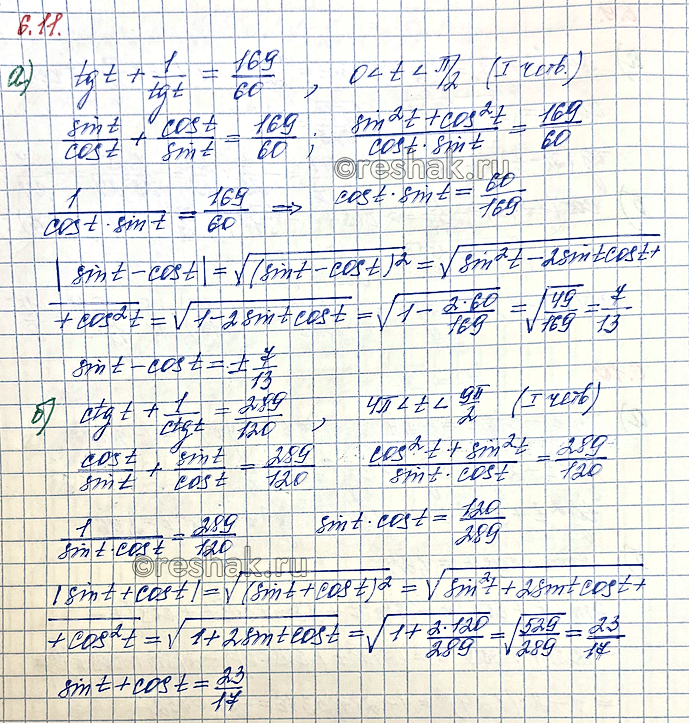 6.11.
а) tg t + 1/tg t = 169/60 , 0 < t < π/2 (I четв.)
sin t/cos t + cos t/sin t = 169/60 ; (sin² t + cos² t)/(cos t · sin t) = 169/60
©reshak.ru
1/(cos t · sin t) = 169/60 => cos t · sin t = 60/169
| sin t − cos t | = √(sin t − cos t)² = √sin² t − 2 sin t cos t +
+ cos² t = √1 − 2 sin t cos t = √1 − 2·60/169 = √49/169 = 7/13
sin t − cos t = ± 7/13
б) ctg t + 1/ctg t = 289/120 , 4π < t < 9π/2 (I четв)
cos t/sin t + sin t/cos t = 289/120 (cos² t + sin² t)/(sin t · cos t) = 289/120
1/(sin t · cos t) = 289/120 sin t · cos t = 120/289
©reshak.ru
| sin t + cos t | = √(sin t + cos t)² = √sin² t + 2 sin t cos t +
+ cos² t = √1 + 2 sin t cos t = √1 + 2·120/289 = √529/289 = 23/17
sin t + cos t = 23/17